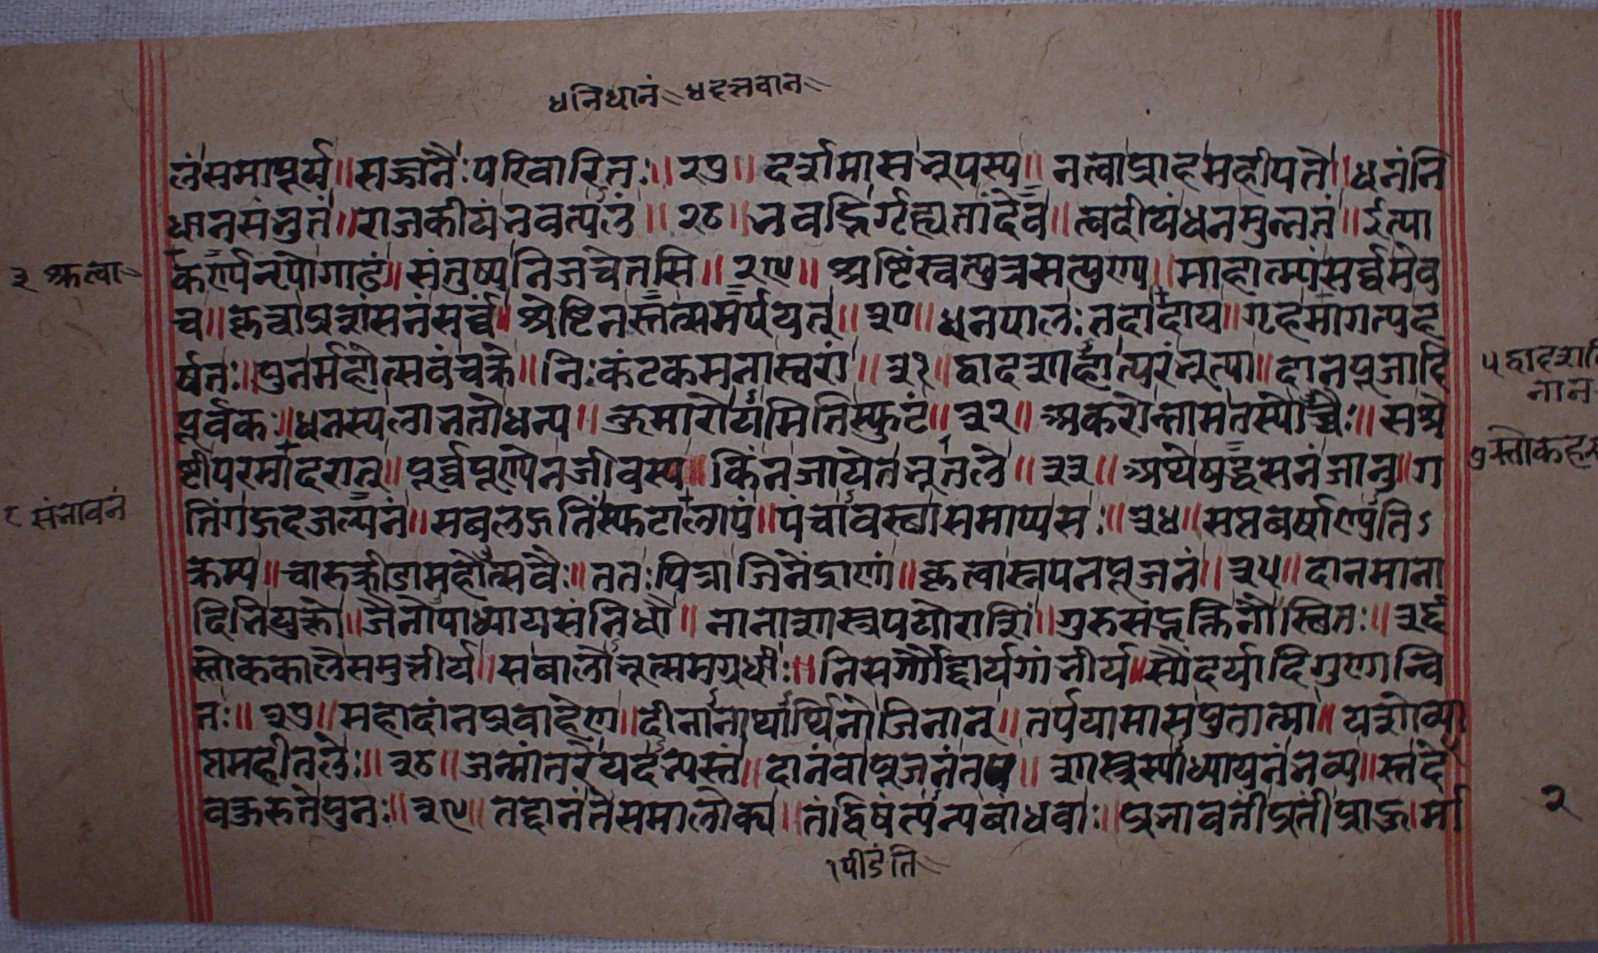 धनिधानं धहसवान
लंसमापूर्य॥सज्जनैःपरिवारितः॥२७॥दर्शामासभूपस्य॥नत्वाप्राहमहीपते॥धनंनि
धानसंभुतं॥राजकीयंभवत्यलं॥२८॥भवद्भिर्गृह्यतांदेव॥त्वदीयंधनमुन्नतं॥ईत्या
कर्ण्यनृपोगाढं॥संतुष्यनिजचेतसि॥२९॥श्रेष्टिंस्त्वत्पुत्रसत्पुण्य॥माहात्म्यंसर्व्वमेव
३ श्रुत्वा
च॥कृत्वाप्रशंसनंसर्व्वं॥श्रेष्टिनस्तत्समर्पयत्॥३०॥धनपालःतदादाय॥गृहमागत्यह
र्षतः॥पुनर्महोत्सवंचक्रे॥निःकंटकमनास्वरां॥३१॥द्वादशाहात्परंभूत्या॥दानपूजादि
पूर्वकः॥धनस्यलाभतोधन्य॥कुमारोर्यमितिस्फुटं॥३२॥अकरोन्नामतस्योच्चैः॥सश्रे
ष्टीपरमादरात्॥पूर्व्वपूण्येनजीवस्य॥किंनजायेतभूतले॥३३॥अथेषद्धसनंजानु॥ग
८ संभावनं
तिंगद्गदजल्पनं॥सबलद्गतिंस्फटालापं॥पंचावस्थासमाप्यसः॥३४॥सप्तबर्षाण्यति
क्रम्य॥चारुक्रीडामहोत्सवैः॥ततःपित्राजिनेंद्राणां॥कृत्वास्नपनपूजनं॥३५॥दानमाना
दिभियुक्तो॥जैनोपाध्यायसंनिधौ॥नानाशास्त्रपयोराशिं॥गुरुसंद्भक्तिनौस्थितः॥३६
स्तोककालैसमुत्तीर्य॥सबालोभूत्समग्रधीः॥निसर्गौदार्यगांभीर्य॥सौंदर्यादिगुणान्वि
तः॥३७॥महादांनप्रवाहेण॥दीनानाथार्थिनोजिनान्॥तर्पयामासपुतात्मा॥यशोव्या
प्तमहीतलेः॥३८॥जन्मांतरेयदभ्यस्तं॥दानंवापूजनंतप॥शास्त्रस्याध्यायनंभव्य॥स्तदे
वकुरुतेपुनः॥३९॥तद्दानंतेसमालोक्य॥तंद्विषंत्यन्यबांधवाः॥प्रभावतींप्रतींप्राहुर्मा
२
१पीडंति